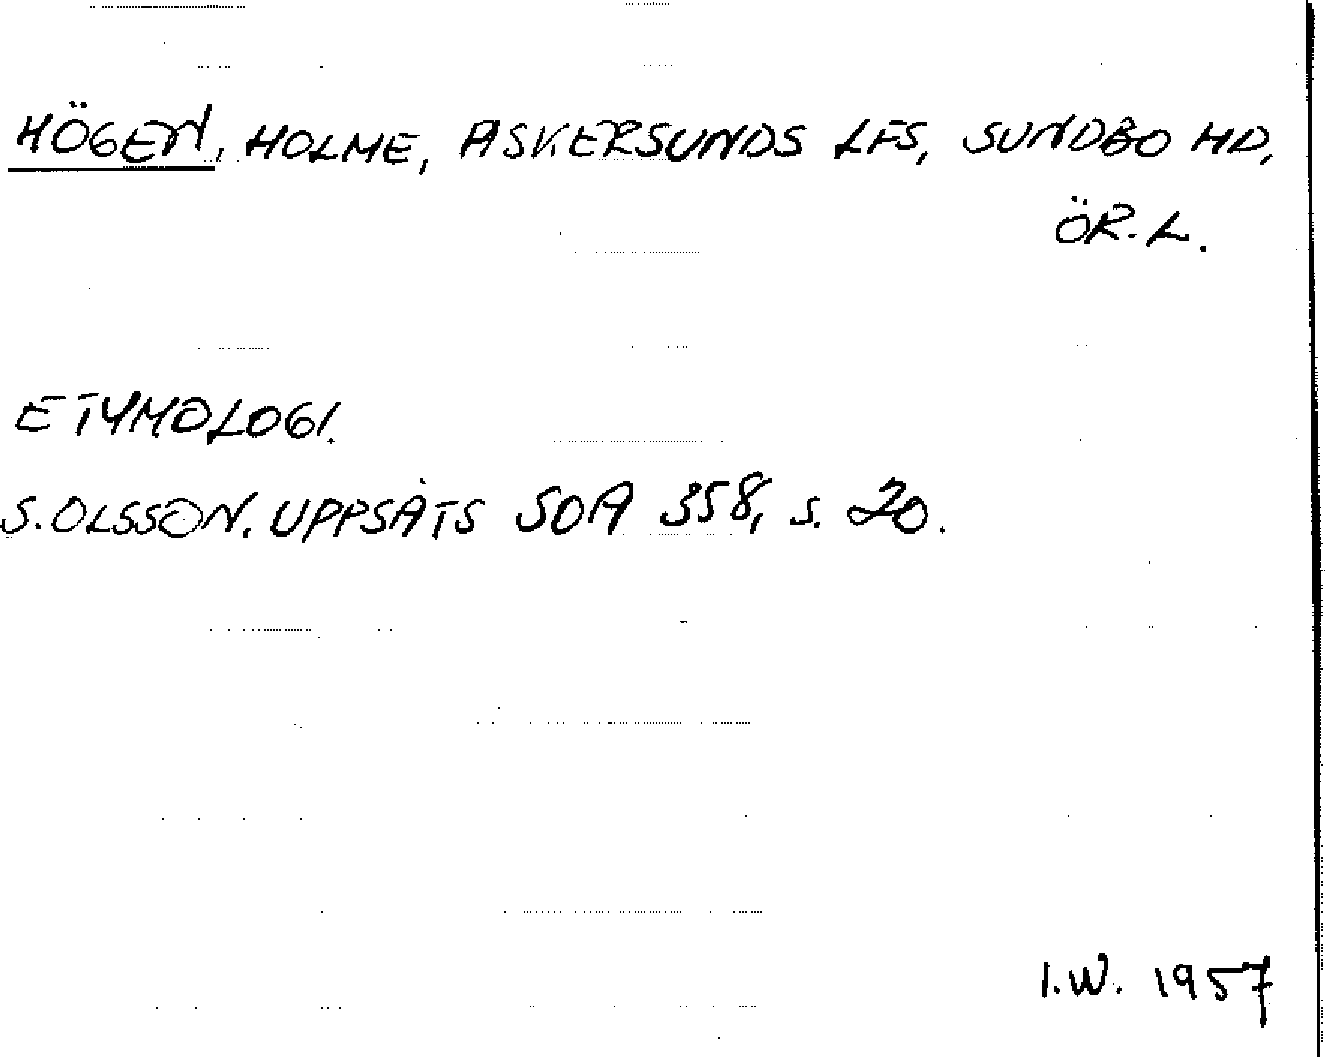 HÖGEN, HOLME, ASKERSUNDS LFS, SUNDBO HD,
ÖR. L.
ETYMOLOGI.
S. OLSSON. UPPSATS SOA 358, S. 20.
I.W. 1957